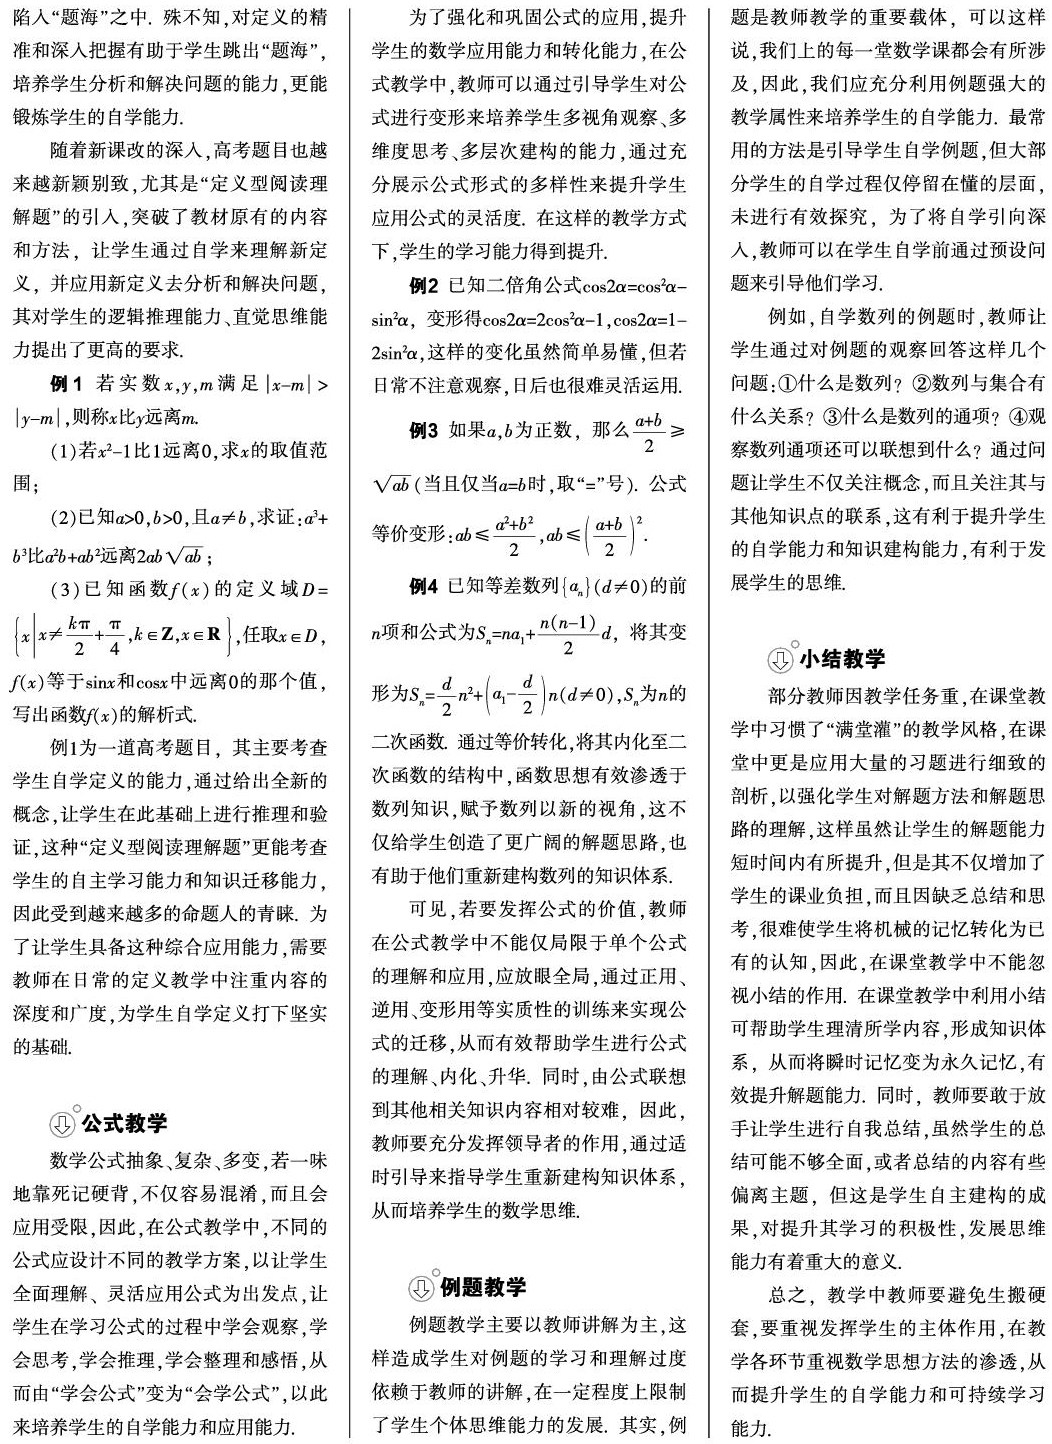 陷入“题海”之中. 殊不知,对定义的精
准和深入把握有助于学生跳出“题海”,
培养学生分析和解决问题的能力,更能
锻炼学生的自学能力.
随着新课改的深入,高考题目也越
来越新颖别致,尤其是“定义型阅读理
解题”的引入,突破了教材原有的内容
和方法，让学生通过自学来理解新定
义，并应用新定义去分析和解决问题,
其对学生的逻辑推理能力、直觉思维能
力提出了更高的要求.
例1 若实数x,y,m满足|x-m|>
|y-m|,则称x比y远离m.
(1)若x²-1比1远离0,求x的取值范
围;
(2)已知a>0,b>0,且a≠b,求证:a³+
b³比a²b+ab²远离2ab√ab;
(3)已知函数f(x)的定义域D=
{x|x≠kπ/2+π/4,k∈Z,x∈R},任取x∈D,
f(x)等于sinx和cosx中远离0的那个值,
写出函数f(x)的解析式.
例1为一道高考题目，其主要考查
学生自学定义的能力,通过给出全新的
概念,让学生在此基础上进行推理和验
证,这种“定义型阅读理解题”更能考查
学生的自主学习能力和知识迁移能力,
因此受到越来越多的命题人的青睐. 为
了让学生具备这种综合应用能力,需要
教师在日常的定义教学中注重内容的
深度和广度,为学生自学定义打下坚实
的基础.
公式教学
数学公式抽象、复杂、多变,若一味
地靠死记硬背,不仅容易混淆,而且会
应用受限,因此,在公式教学中,不同的
公式应设计不同的教学方案,以让学生
全面理解、灵活应用公式为出发点,让
学生在学习公式的过程中学会观察,学
会思考,学会推理,学会整理和感悟,从
而由“学会公式”变为“会学公式”,以此
来培养学生的自学能力和应用能力.
为了强化和巩固公式的应用,提升
学生的数学应用能力和转化能力,在公
式教学中,教师可以通过引导学生对公
式进行变形来培养学生多视角观察、多
维度思考、多层次建构的能力,通过充
分展示公式形式的多样性来提升学生
应用公式的灵活度. 在这样的教学方式
下,学生的学习能力得到提升.
例2 已知二倍角公式cos2α=cos²α-
sin²α，变形得cos2α=2cos²α-1,cos2α=1-
2sin²α,这样的变化虽然简单易懂,但若
日常不注意观察,日后也很难灵活运用.
例3 如果a,b为正数，那么(a+b)/2≥
√ab(当且仅当a=b时,取“=”号). 公式
等价变形:ab≤(a²+b²)/2,ab≤((a+b)/2)².
例4 已知等差数列{aₙ}(d≠0)的前
n项和公式为Sₙ=na₁+n(n-1)/2 d，将其变
形为Sₙ=d/2 n²+(a₁-d/2)n(d≠0),Sₙ为n的
二次函数. 通过等价转化,将其内化至二
次函数的结构中,函数思想有效渗透于
数列知识,赋予数列以新的视角,这不
仅给学生创造了更广阔的解题思路,也
有助于他们重新建构数列的知识体系.
可见,若要发挥公式的价值,教师
在公式教学中不能仅局限于单个公式
的理解和应用,应放眼全局,通过正用、
逆用、变形用等实质性的训练来实现公
式的迁移,从而有效帮助学生进行公式
的理解、内化、升华. 同时,由公式联想
到其他相关知识内容相对较难，因此,
教师要充分发挥领导者的作用,通过适
时引导来指导学生重新建构知识体系,
从而培养学生的数学思维.
例题教学
例题教学主要以教师讲解为主,这
样造成学生对例题的学习和理解过度
依赖于教师的讲解,在一定程度上限制
了学生个体思维能力的发展. 其实,例
题是教师教学的重要载体，可以这样
说,我们上的每一堂数学课都会有所涉
及,因此,我们应充分利用例题强大的
教学属性来培养学生的自学能力. 最常
用的方法是引导学生自学例题,但大部
分学生的自学过程仅停留在懂的层面,
未进行有效探究，为了将自学引向深
入,教师可以在学生自学前通过预设问
题来引导他们学习.
例如,自学数列的例题时,教师让
学生通过对例题的观察回答这样几个
问题:①什么是数列? ②数列与集合有
什么关系? ③什么是数列的通项? ④观
察数列通项还可以联想到什么? 通过问
题让学生不仅关注概念,而且关注其与
其他知识点的联系,这有利于提升学生
的自学能力和知识建构能力,有利于发
展学生的思维.
小结教学
部分教师因教学任务重,在课堂教
学中习惯了“满堂灌”的教学风格,在课
堂中更是应用大量的习题进行细致的
剖析,以强化学生对解题方法和解题思
路的理解,这样虽然让学生的解题能力
短时间内有所提升,但是其不仅增加了
学生的课业负担,而且因缺乏总结和思
考,很难使学生将机械的记忆转化为已
有的认知,因此,在课堂教学中不能忽
视小结的作用. 在课堂教学中利用小结
可帮助学生理清所学内容,形成知识体
系，从而将瞬时记忆变为永久记忆,有
效提升解题能力. 同时，教师要敢于放
手让学生进行自我总结,虽然学生的总
结可能不够全面,或者总结的内容有些
偏离主题，但这是学生自主建构的成
果,对提升其学习的积极性,发展思维
能力有着重大的意义.
总之，教学中教师要避免生搬硬
套,要重视发挥学生的主体作用,在教
学各环节重视数学思想方法的渗透,从
而提升学生的自学能力和可持续学习
能力.